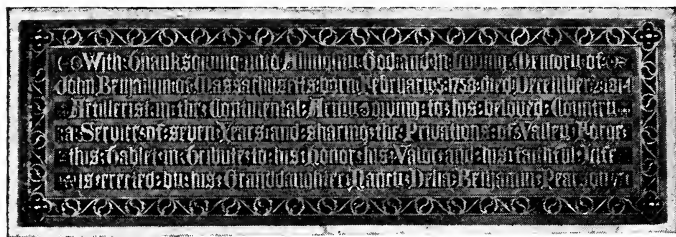 With Thanksgiving to Almighty God and in Loving Memory of
John Benjamin of Massachusetts born February 1758 died December 1814
Artillerist in the Continental Army giving to his beloved Country
a Service of seven Years and sharing the Privations of Valley Forge
this Tablet in Tribute to his Honor his Valor and his faithful Life
is erected by his Granddaughter Delia Benjamin Pearson